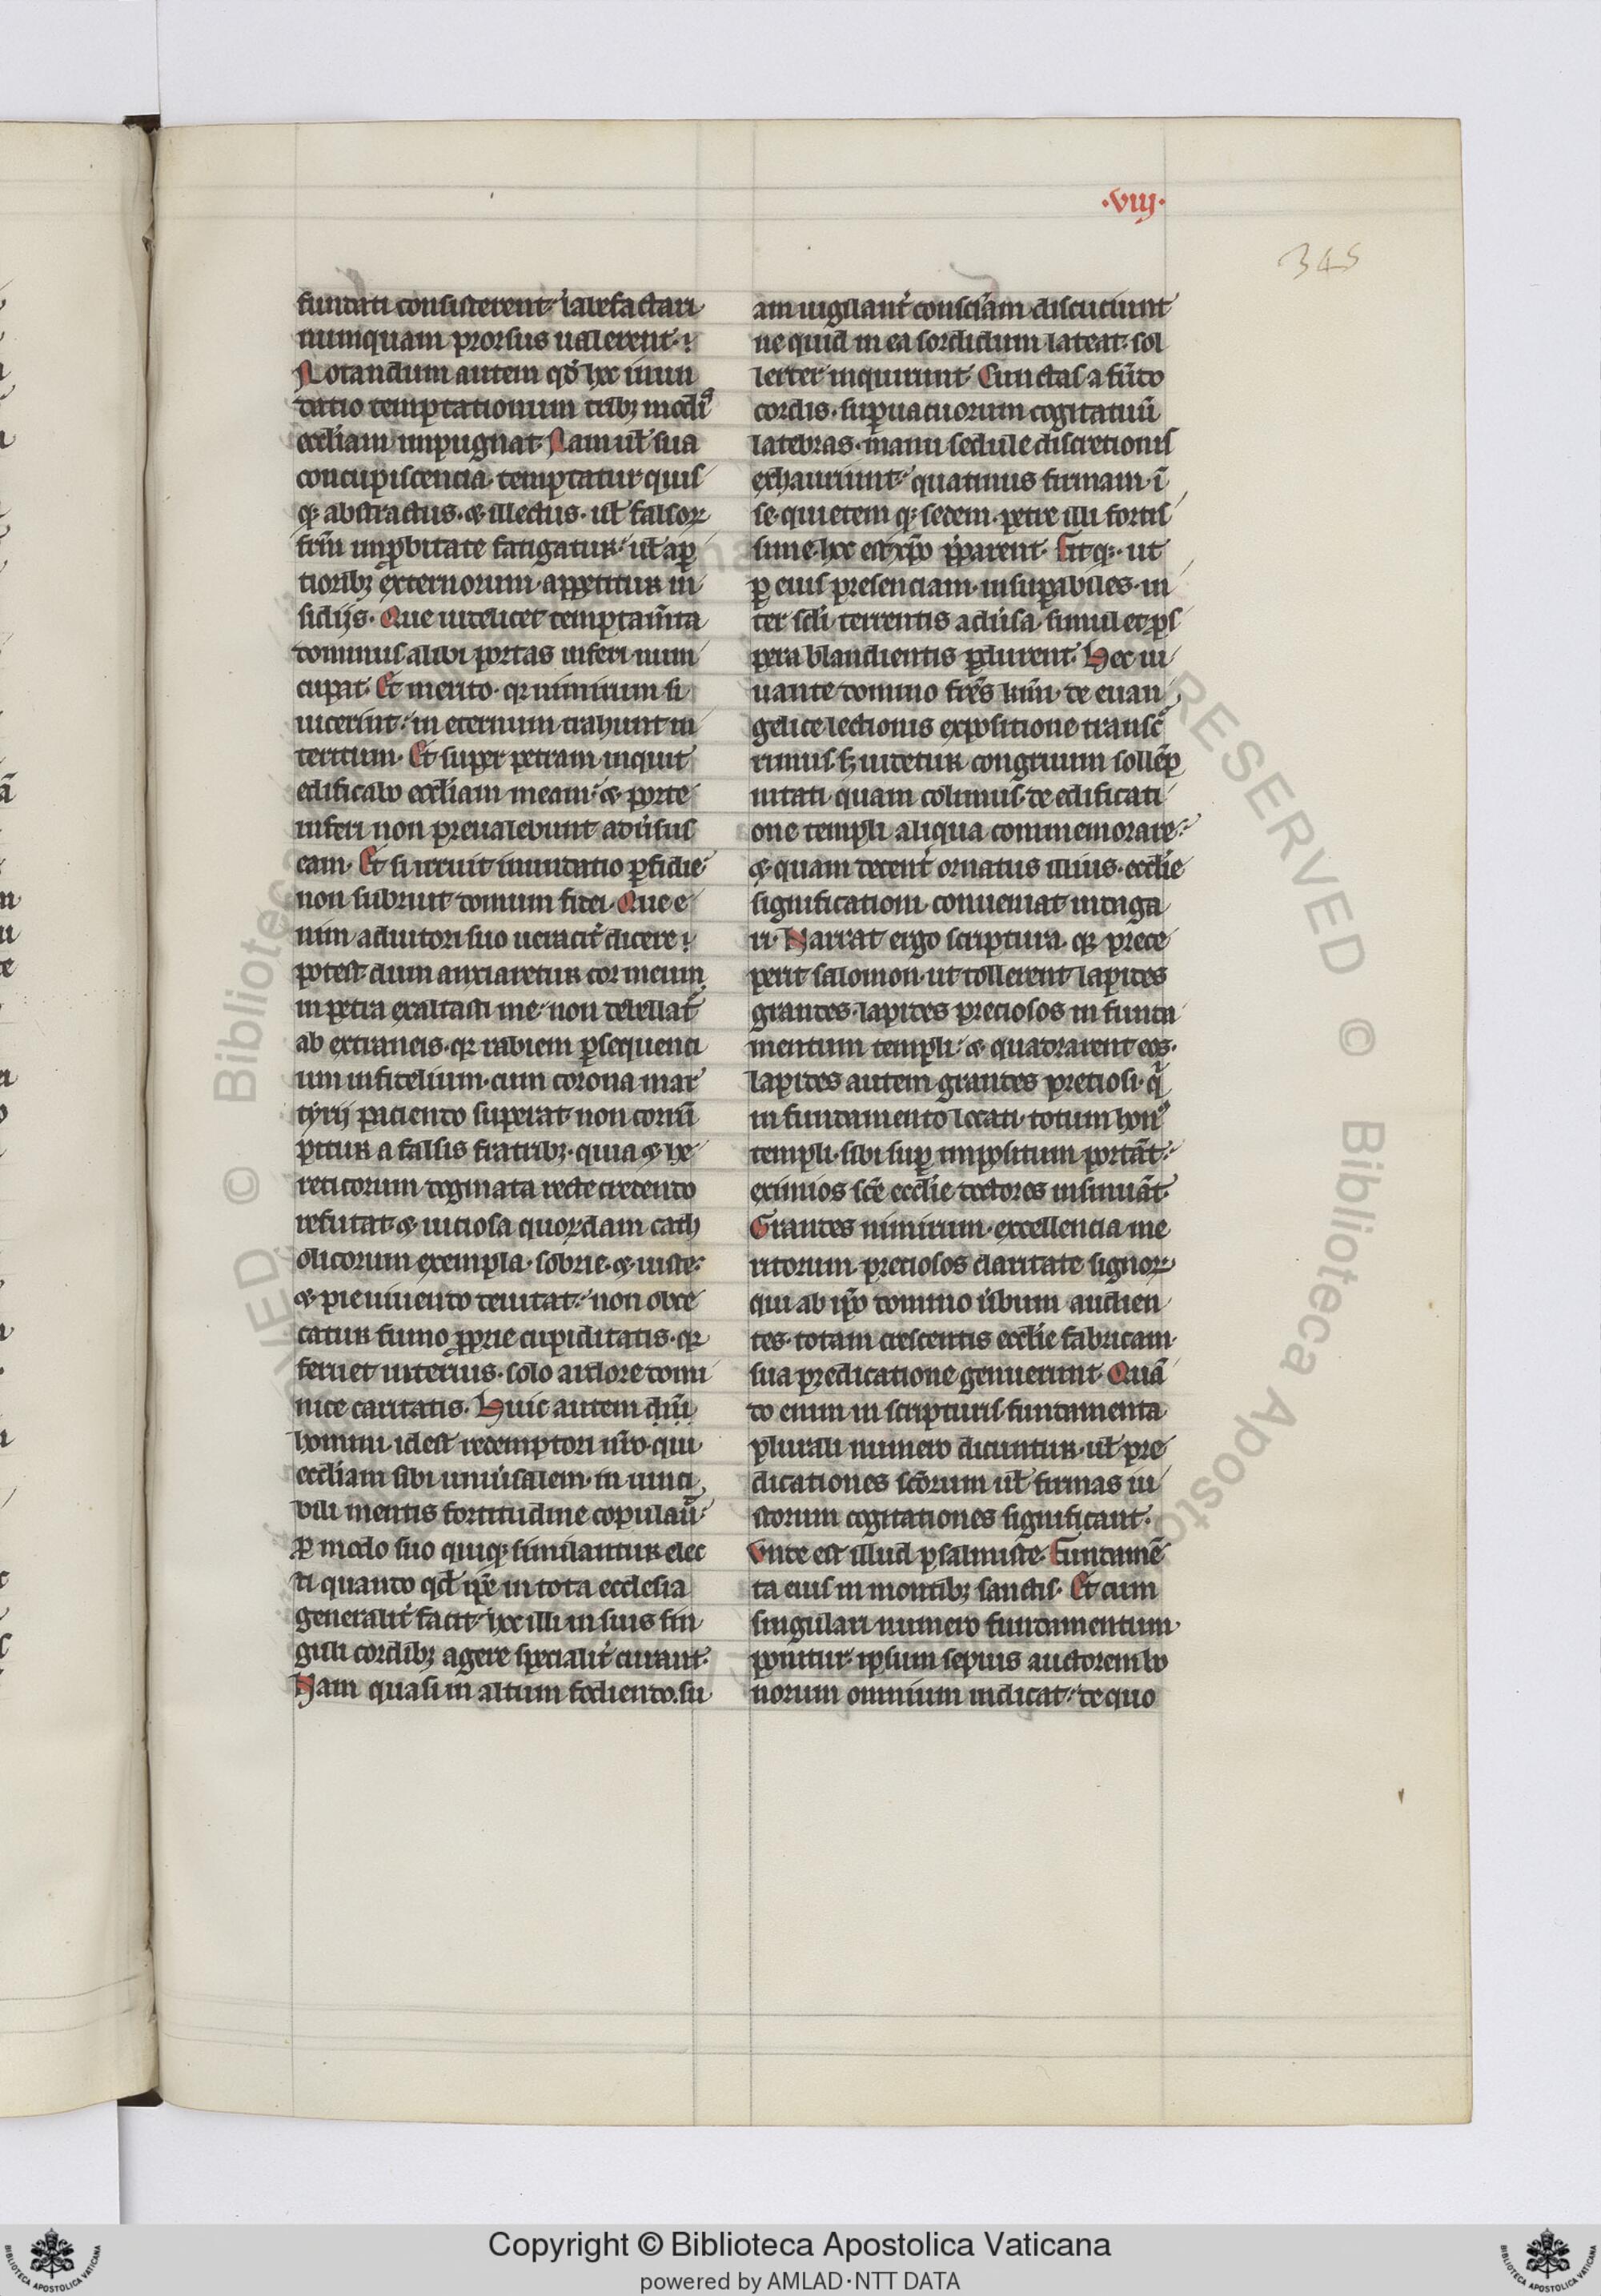 ·viij·
345
fundati consisterent· labefactari
numquam prorsus ualerent·:
Notandum autem qđ hec inun
datio temptationum tribꝫ modiꝰ
eccłiam impugnat· Nam uł sua
concupiscencia· temptatur quis
qꝫ abstractus· ⁊ illectus· uł falsoꝝ
frm̄ improbitate fatigatur· uł ap
tioribꝫ externorum· appetitur in
sidijs· Que uidelicet temptam̄ta
dominus alibi portas inferi nun
cupat· Et merito· qꝛ nimirum si
uicerint· in eternum trahunt in
teritum· Et super petram inquit
edificabo eccłiam meam· ⁊ porte
inferi non preualebunt adūsus
eam· Et si irruit inundatio ꝑfidie·
non subruit domum fidei· Que e
nim adiutori suo ueracit̄ dicere·
potest dum anxiaretur cor meum
in petra exaltasti me· non debellat̄
ab extraneis· qꝛ rabiem ꝑsequenci
um infidelium· cum corona mar
tyrij paciendo superat· non corrū
pitur a falsis fratribꝫ· quia ⁊ he
reticorum dogmata recte credendo
refutat· ⁊ uiciosa quorꝺam cath
olicorum exempla· sobrie· ⁊ iuste·
⁊ pie uiuendo deuitat· non obce
catur fumo ꝓprie cupiditatis· qꝛ
feruet interius· solo ardore domi
nice caritatis· Huic autem diuī
homini· idest redemptori nr̄o· qui
eccłiam sibi uniūsalem· in uinci
bili mentis fortitudine copulau̅·
ꝓ modo suo quiqꝫ similantur elec
ti quando qđ ip̄e in tota ecclesia
generalit̄ facit· hec illi in suis sin
guli cordibꝫ agere specialit̄ curant·
Nam quasi in altum fodiendo· su
am uigilant̄ consciam discuciunt
ne quid in ea sordidum lateat· sol
lerter inquirunt Cunctas a fūdo
cordis· supuacuorum cogitatuū
latebras· manu sedule discretionis
exhauriunt· quatinus firmam· ī
se· quietem qꝫ sedem· petre illi fortis
sime· hec est xp̄o p̄parent· Fit qꝫ· ut
ꝑ eius presenciam· insuꝑabiles· in
ter sc̄li terrentis adūsa· simul et ꝓs
pera blandientis ꝑdurent· Hec iu
uante domino fr̄es k̄mi· de euan
gelice lectionis expositione transc̄
rimus· ꝩ uidetur congruum sollēp
nitati quam colimus· de edificati
one templi aliqua commemorare·
⁊ quam decent̄ ornatus illius· eccłie
significationi· conueniat inuega
ri· Narrat ergo scriptura· qꝛ prece
perit salomon· ut tollerent lapides
grandes· lapides preciosos in funda
mentum templi· ⁊ quadrarent eos·
lapides autem grandes preciosi· q̄
in fundamento locati· totum honꝰ
templi· sibi suꝑ impositum portāt·
eximios sc̄e eccłie doctores insinuāt·
Grandes nimirum· excellencia me
ritorum· preciosos claritate signoꝝ
qui ab ip̄o domino ūbum audien
tes· totam crescentis eccłie fabricam·
sua predicatione genuerunt· Quā
do enim in scripturis· fundamenta
plurali numero dicuntur· uł pre
dicationes sc̄orum uł firmas iu
storum cogitationes significant·
Vnde est illud psalmiste· Fundamē
ta eius in montibꝫ sanctis· Et cum
singulari numero fundamentum
ponitur· ipsum sepius auctorem bo
norum omnium indicat· de quo
Copyright © Biblioteca Apostolica Vaticana
powered by AMLAD·NTT DATA